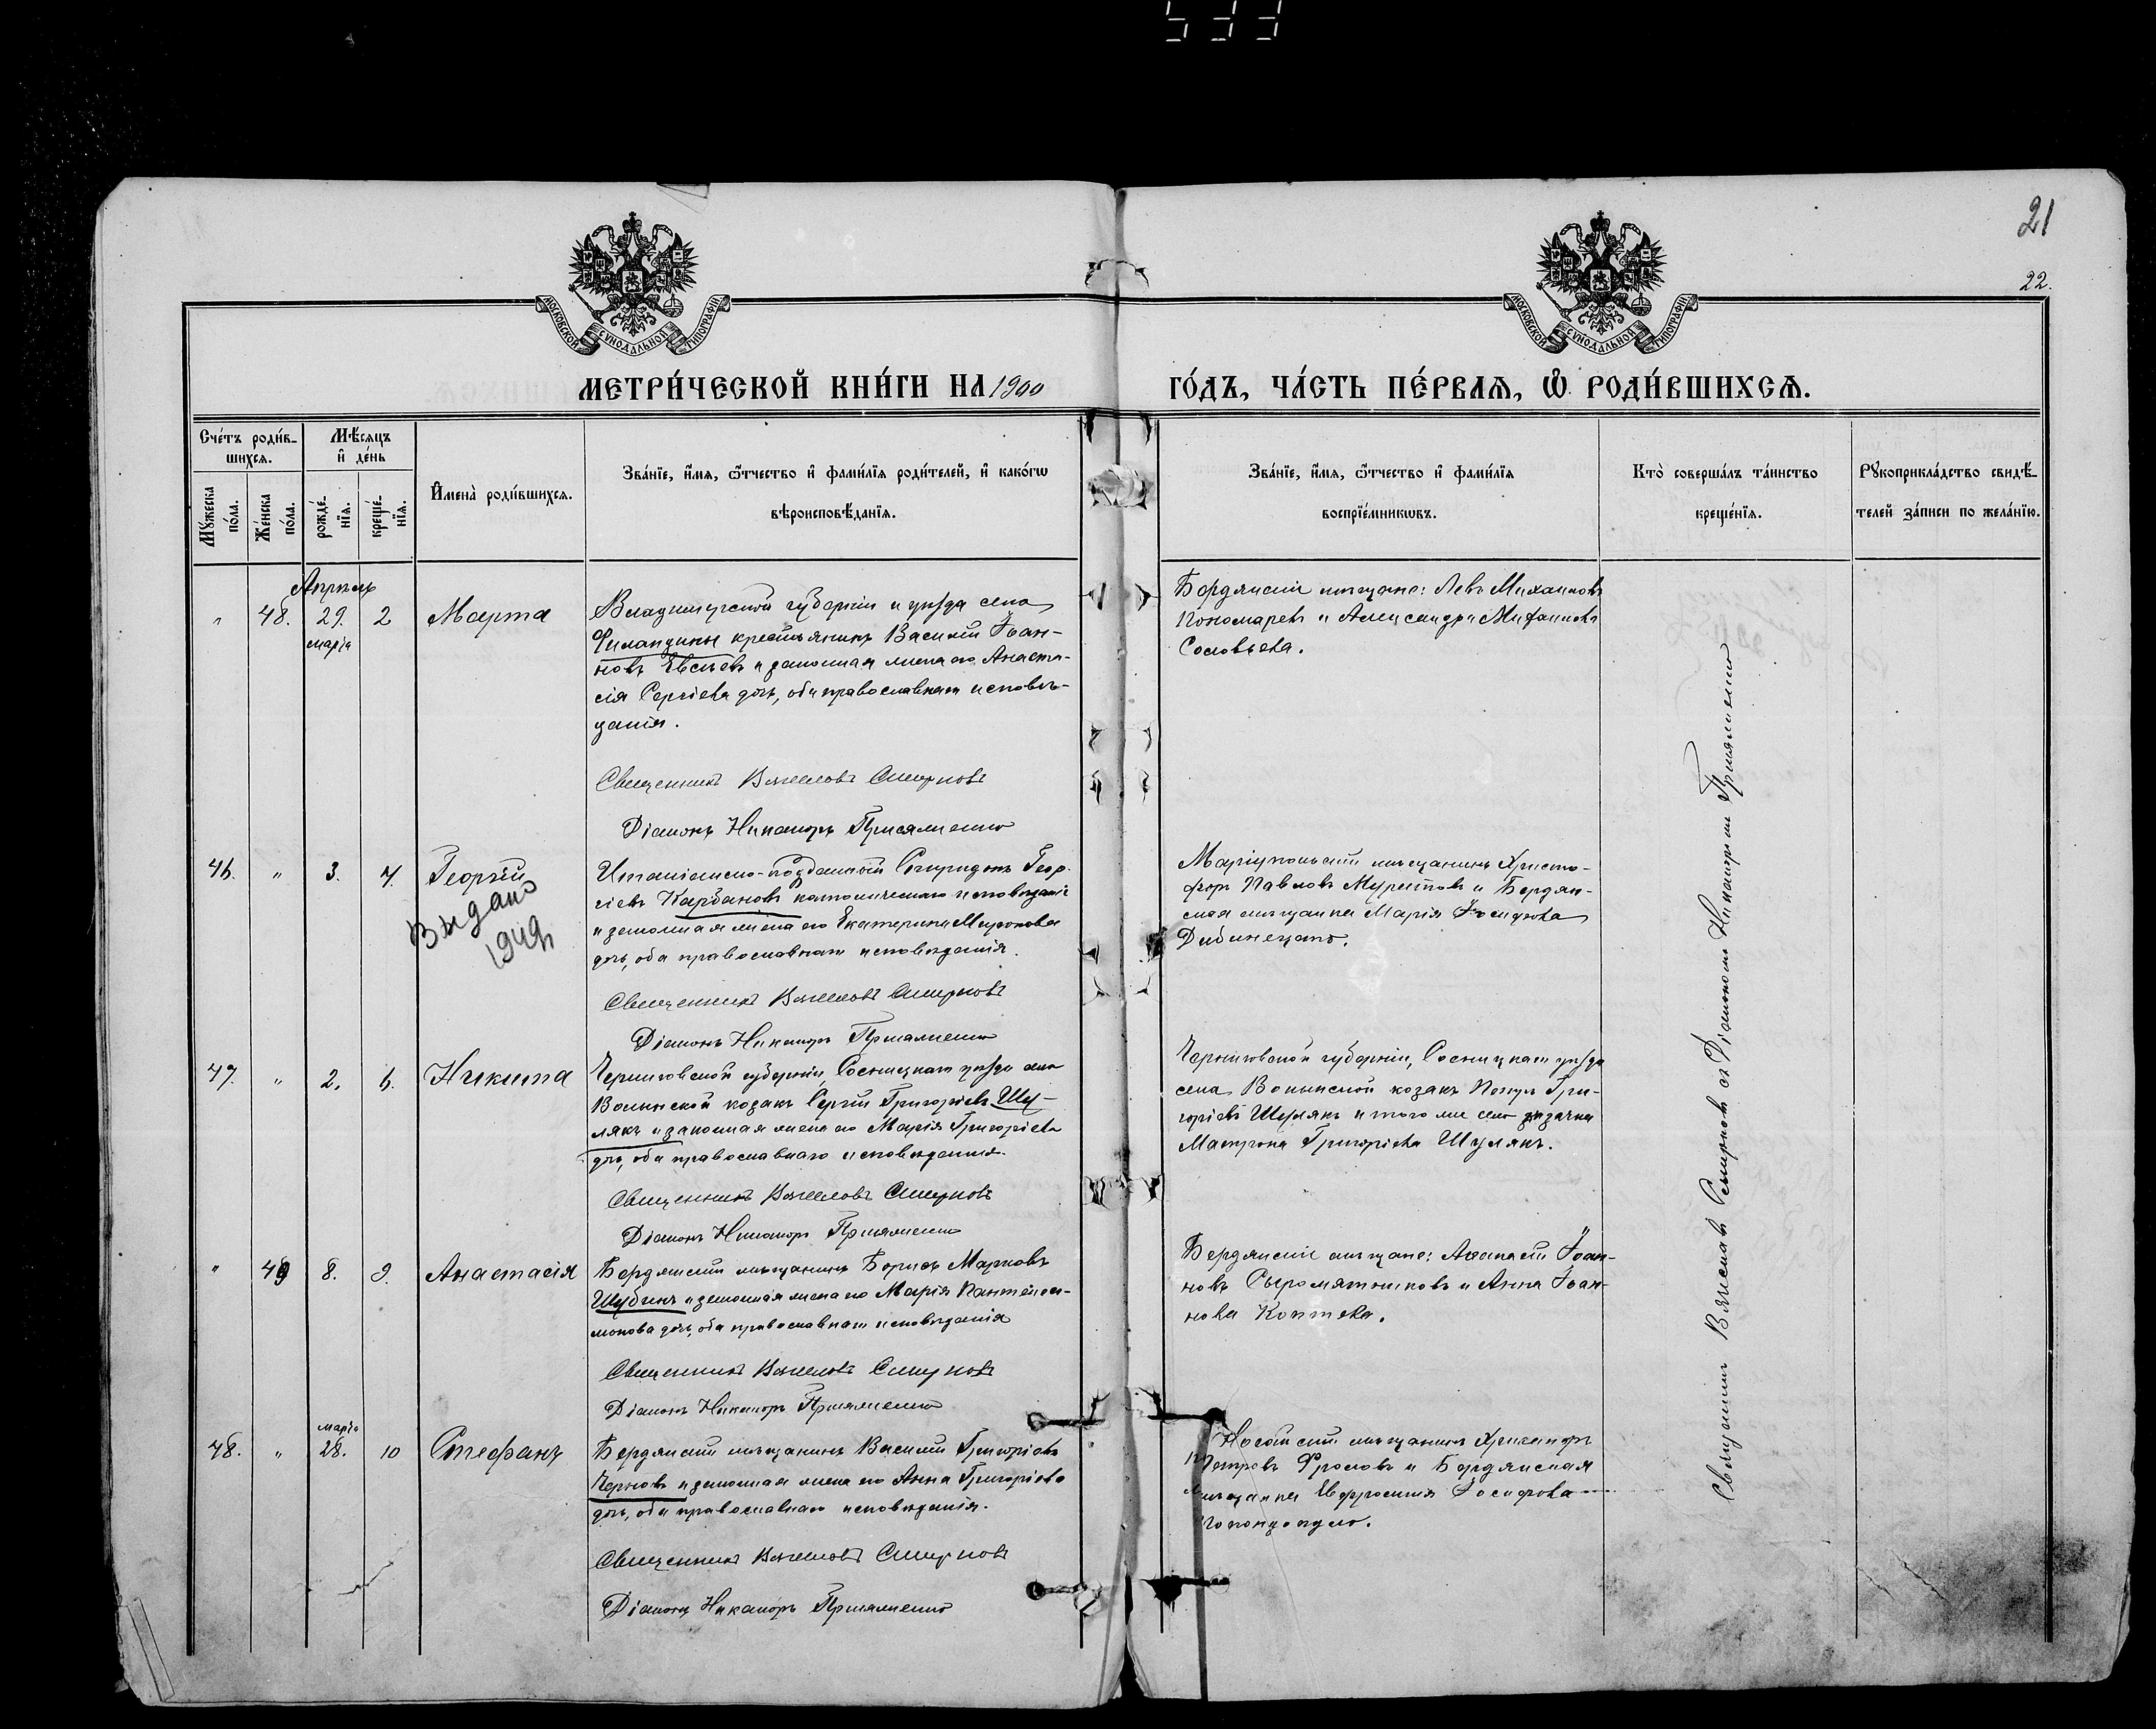 533
21
22.
МОСКОВСКОЙ СѴНОДАЛЬНОЙ ТИПОГРАФІИ
МОСКОВСКОЙ СѴНОДАЛЬНОЙ ТИПОГРАФІИ
МЕТРИ́ЧЕСКОЙ КНИ́ГИ НА 1900 ГО́ДЪ, ЧА́СТЬ ПЕ́РВАѦ, Ѡ҆ РОДИ́ВШИХСѦ.
Сче́тъ роди́в-
шихсѧ.
Мѣ́сѧцъ
и҆ де́нь
Мꙋ́жеска по́ла.
Же́нска по́ла.
рожде́-
нїѧ.
креще́-
нїѧ.
И҆мена̀ роди́вшихсѧ.
Зва́нїе, и҆́мѧ, ѻ҆́тчество и҆ фами́лїѧ роди́телей, и҆ како́гѡ
вѣроисповѣ́данїѧ.
Зва́нїе, и҆́мѧ, ѻ҆́тчество и҆ фами́лїѧ
воспрїе́мникѡвъ.
Кто̀ соверша́лъ та́инство
креще́нїѧ.
Рꙋкоприкла́дство свидѣ́-
телей за́писи по жела́нїю.
Апрель
" 48. 29. 2 Марта
марта
Владимірской губерніи и уѣзда села
крестьянинъ Василій Іоан-
новъ Евсѣевъ и законная жена его Анаста-
сія Сергіева дочь, оба православнаго исповѣ-
данія.
Священникъ Вячеславъ Смирновъ
Діаконъ Никаноръ
Бердянскіе мѣщане: Левъ Михаиловъ
Пономаревъ и Александра Михаилова
Соловьева.
46. " 3. 7. Георгій
Выдано
1949
Италіанско-подданный Спиридонъ Геор-
гіевъ Карбановъ католическаго исповѣданія
и законная жена его Екатерина Миронова
дочь, оба православнаго исповѣданія.
Священникъ Вячеславъ Смирновъ
Діаконъ Никаноръ
Маріупольскій мѣщанинъ Христо-
форъ Павловъ и Бердян-
ская мѣщанка Марія Іосифова
47. " 2. 6. Никита
Черниговской губерніи, Сосницкаго уѣзда села
Волынской козакъ Сергій Григорьевъ Шу-
лякъ и законная жена его Марія Григорьева
дочь, оба православнаго исповѣданія.
Священникъ Вячеславъ Смирновъ
Діаконъ Никаноръ
Черниговской губерніи, Сосницкаго уѣзда
села Волынской козакъ Гри-
горіевъ Шулякъ и того же села козачка
Матрона Григоріева Шулякъ.
" 49 8. 9. Анастасія
Бердянскій мѣщанинъ Борисъ Марковъ
Шубинъ и законная жена его Марія Пантелей-
монова дочь, оба православнаго исповѣданія
Священникъ Вячеславъ Смирновъ
Діаконъ Никаноръ
Бердянскіе мѣщане: Аѳанасій Іоан-
новъ Сыромятниковъ и Анна Іоан-
нова Коптева.
марта
48. " 28. 10 Стефанъ
Бердянскій мѣщанинъ Василій Григорьевъ
Черновъ и законная жена его Анна Григорьева
дочь, оба православнаго исповѣданія.
Священникъ Вячеславъ Смирновъ
Діаконъ Никаноръ
Ногайскій мѣщанинъ
Петровъ Фроловъ и Бердянская
мѣщанка Евфросинія Іосифова
Священникъ Вячеславъ Смирновъ съ Діакономъ Никаноромъ